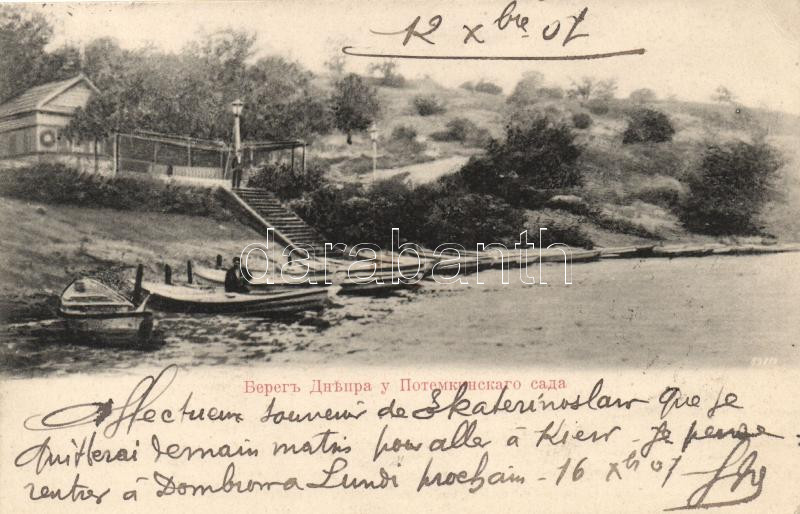 12 Xbre 07
darabanth
Берегъ Днѣпра у Потемкинскаго сада
Affectueux souvenir de Ekaterinoslaw que je
quitterai demain matin pour aller à Kiew. Je pense
rentrer à Dombrowa Lundi prochain - 16 Xbre 07